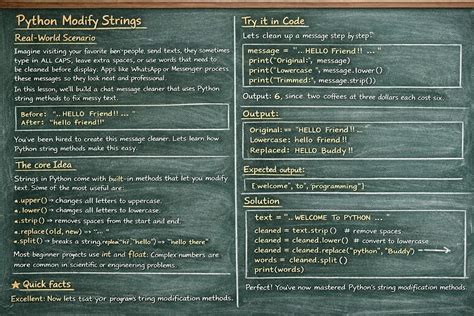 Python Modify Strings
Real-World Scenario
Imagine visiting your favorite people, send texts, they sometimes
type in ALL CAPS, leave extra spaces, or use words that need to
be cleaned before display. Apps like WhatsApp or Messenger process
these messages so they look neat and professional.
In this lesson, we'll build a chat message cleaner that uses Python
string methods to fix messy text.
Before: "..HELLO Friend!! .. "
After: "hello friend!!"
You've been hired to create this message cleaner. Lets learn how
Python string methods make this easy.
The core Idea
Strings in Python come with built-in methods that let you modify
text. Some of the most useful are:
.upper() → changes all letters to uppercase.
.lower() → changes all letters to lowercase.
.strip() → removes spaces from the start and end.
.replace(old, new) → "=
.split() → breaks a string,replace "hi", "hello") => "hello there"
Most beginner projects use int and float: Complex numbers are
more common in scientific or engineering problems.
★ Quick facts
Excellent: Now lets string modification methods.
Try it in Code
Let's clean up a message step by step:
message = "...HELLO Friend!! ... "
print("Original:", message)
print("Lowercase ", message.lower()
print("Trimmed:", message.strip())
Output: 6, since two coffees at three dollars each cost six.
Output:
Original: = "HELLO Friend!! "
Lowercase: hello friend!!
Replaced: HELLO Buddy!!
Expected output:
["welcome", "to", "programming"]
Solution
text = "..WELCOME To PYTHON ...
cleaned = text.strip() # remove spaces
cleaned = cleaned.lower() # convert to lowercase
cleaned = cleaned.replace("python", "Buddy")
words = cleaned.split ()
print(words)
Perfect! You've now mastered Python's string modification methods.